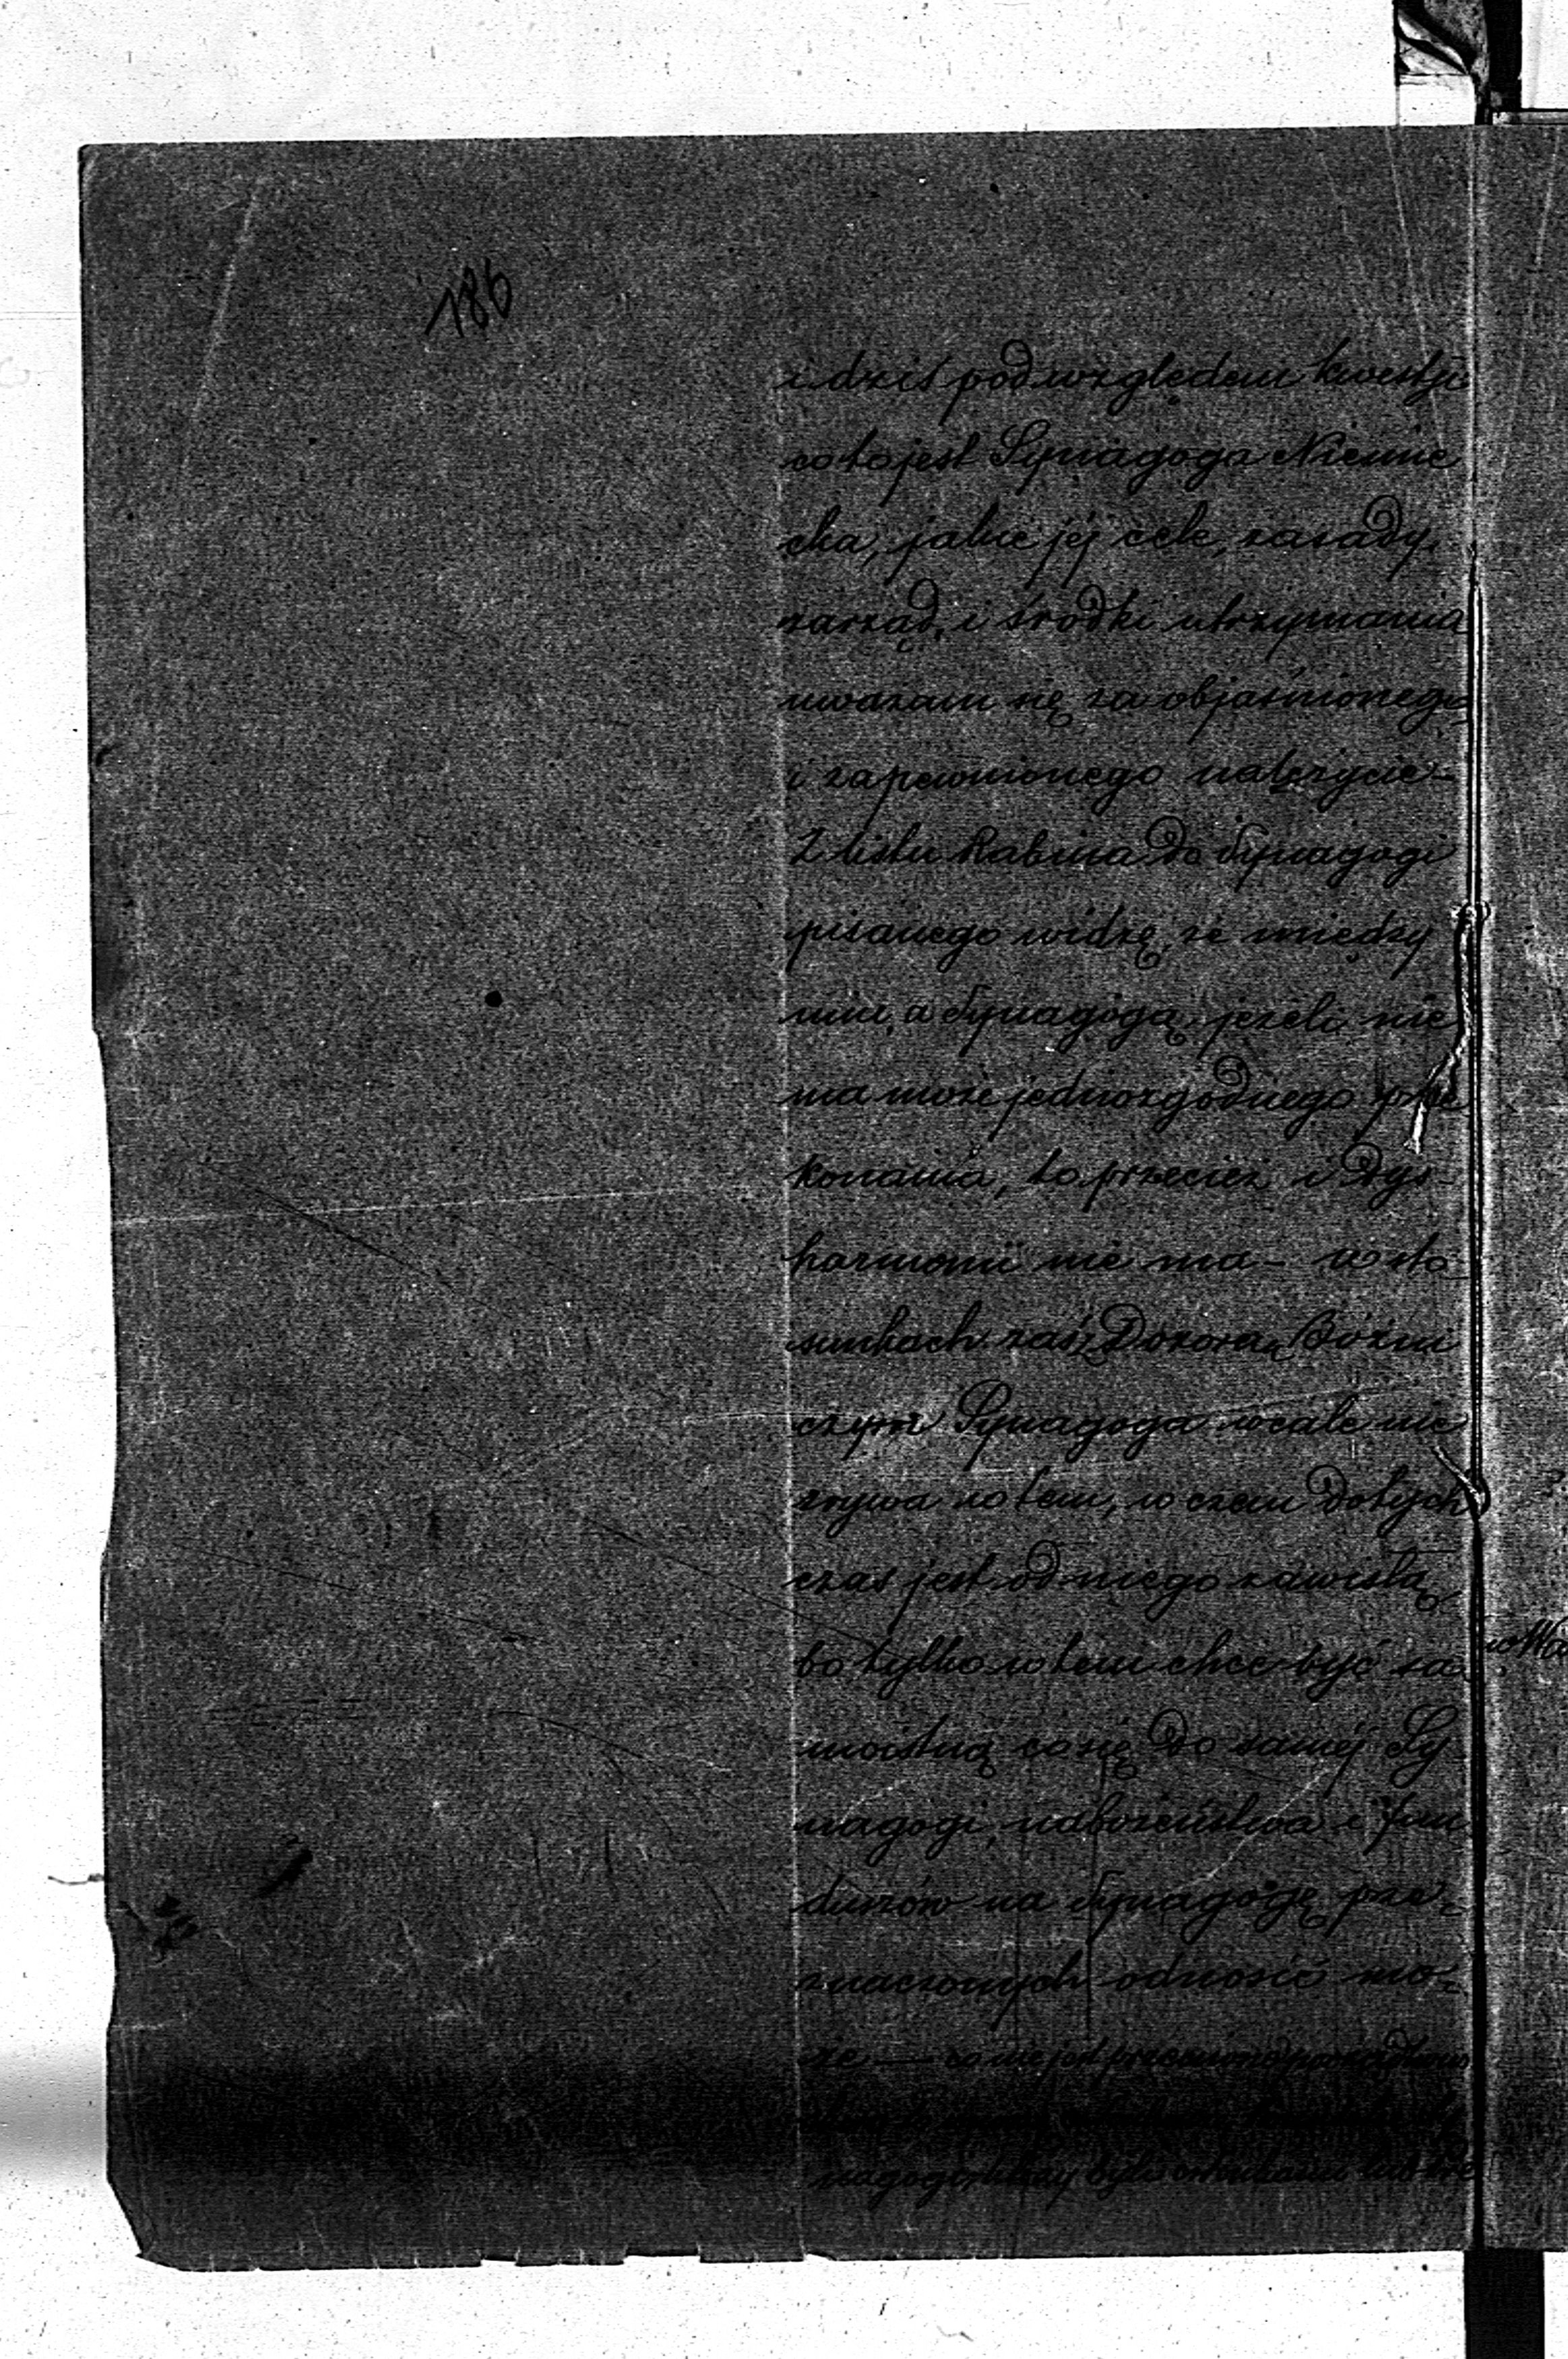 186
i dziś pod względem kwestji
co to jest Synagoga Niemie
cka, jakie jéj cele, zasady,
zarząd, i środki utrzymania
uważam się za objaśnionego
i zapewnionego należycie -
Z listu Rabina do Synagogi
pisanego widzę, że między
nim, a Synagogą, jeżeli nie
ma może jednozgodnego prze
konania, to przecież i dys-
harmonii nie ma - w sto-
sunkach zaś z Dozorem Bóżni
czym Synagoga wcale nie
zrywa w tem, w czem dotych
czas jest od niego zawisłą
bo tylko w tem chce być sa
moistną co się do saméj Sy
nagogi, nabożeństwa i fun
duszów na Synagogę prze-
znaczonych odnosić mo-
że — co nie jest
nagogi